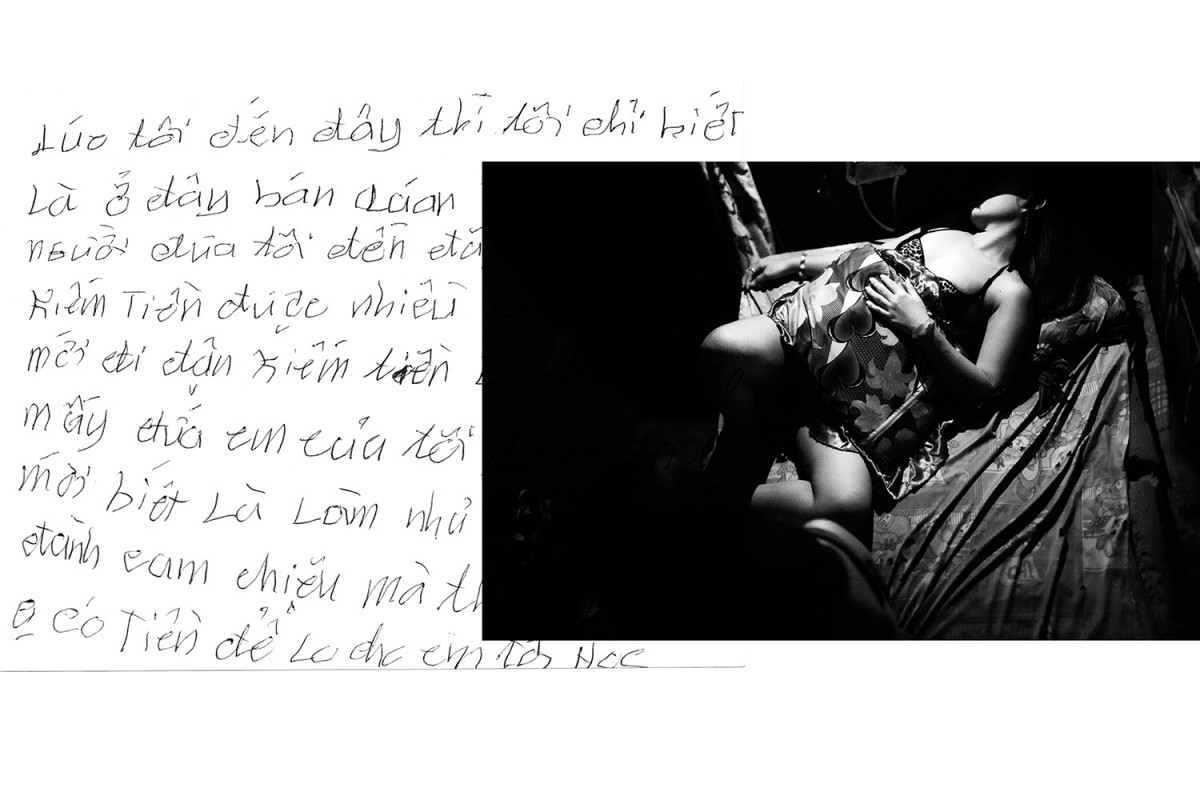 Lúc tôi đến đây thì tôi chỉ biết
Là ở đây bán Quán
người đưa tôi đến đâ
Kiếm Tiền được nhiều
mới đi dận kiếm tiền
mấy đứa em của tôi
mới biết Là Làm như
đành cam chiệu mà th
có Tiền để Lo cho em tôi Học